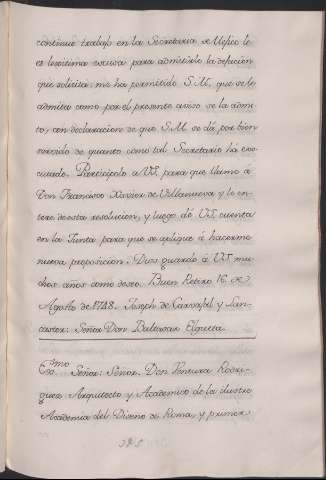 continuo trabajo en la Secretaria de Mexico le
es lexitima escusa para admitirle la dejacion
que solicita: me ha permitido S.M. que se le
admita como por el presente aviso se la admi-
to, con declaracion de que S.M. se dá por bien
servido de quanto como tal Secretario há exe-
cutado. Participolo a VS. para que llame á
Don Francisco Xavier de Villanueva y le en-
tere de esta resolucion, y luego dé VS. cuenta
en la Junta para que se aplique á hacerme
nueva proposicion. Dios guarde á VS. mu-
chos años como deseo. Buen Retiro 16 de
Agosto de 1748. Joseph de Carvajal y Lan-
caster: Señor Don Baltasar Elgueta.
Exmo Señor: Señor. Don Ventura Rodri-
guez Arquitecto y Academico de la ilustre
Academia del Diseño de Roma, y primer